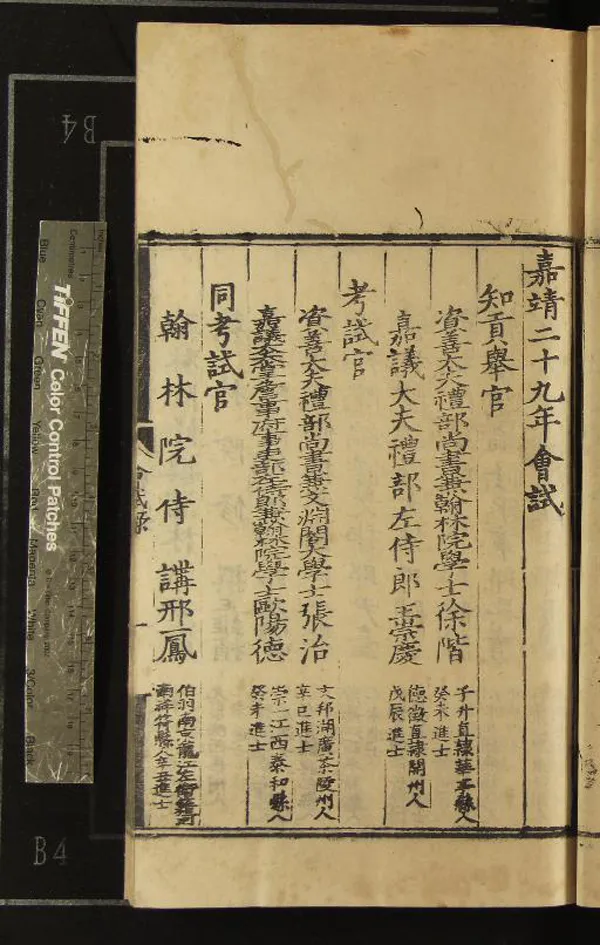 嘉靖二十九年會試
知貢舉官
資善大夫禮部尚書兼翰林院學士徐階
子升直隸華亭縣人
癸未進士
嘉議大夫禮部左侍郎王崇慶
德徵直隸開州人
戊辰進士
考試官
資善大夫禮部尚書兼文淵閣大學士張治
文邦湖廣茶陵州人
辛巳進士
嘉議大夫詹事府詹事兼翰林院學士歐陽德
崇一江西泰和縣人
癸未進士
同考試官
翰林院侍講邢一鳳
伯羽南京龍江左衛籍河
南祥符縣人辛丑進士
會試錄
一
B4
B4
Inches
Centimetres
TIFFEN Color Control Patches
Blue
Cyan
Green
Yellow
Red
Magenta
White
3/Color
Black